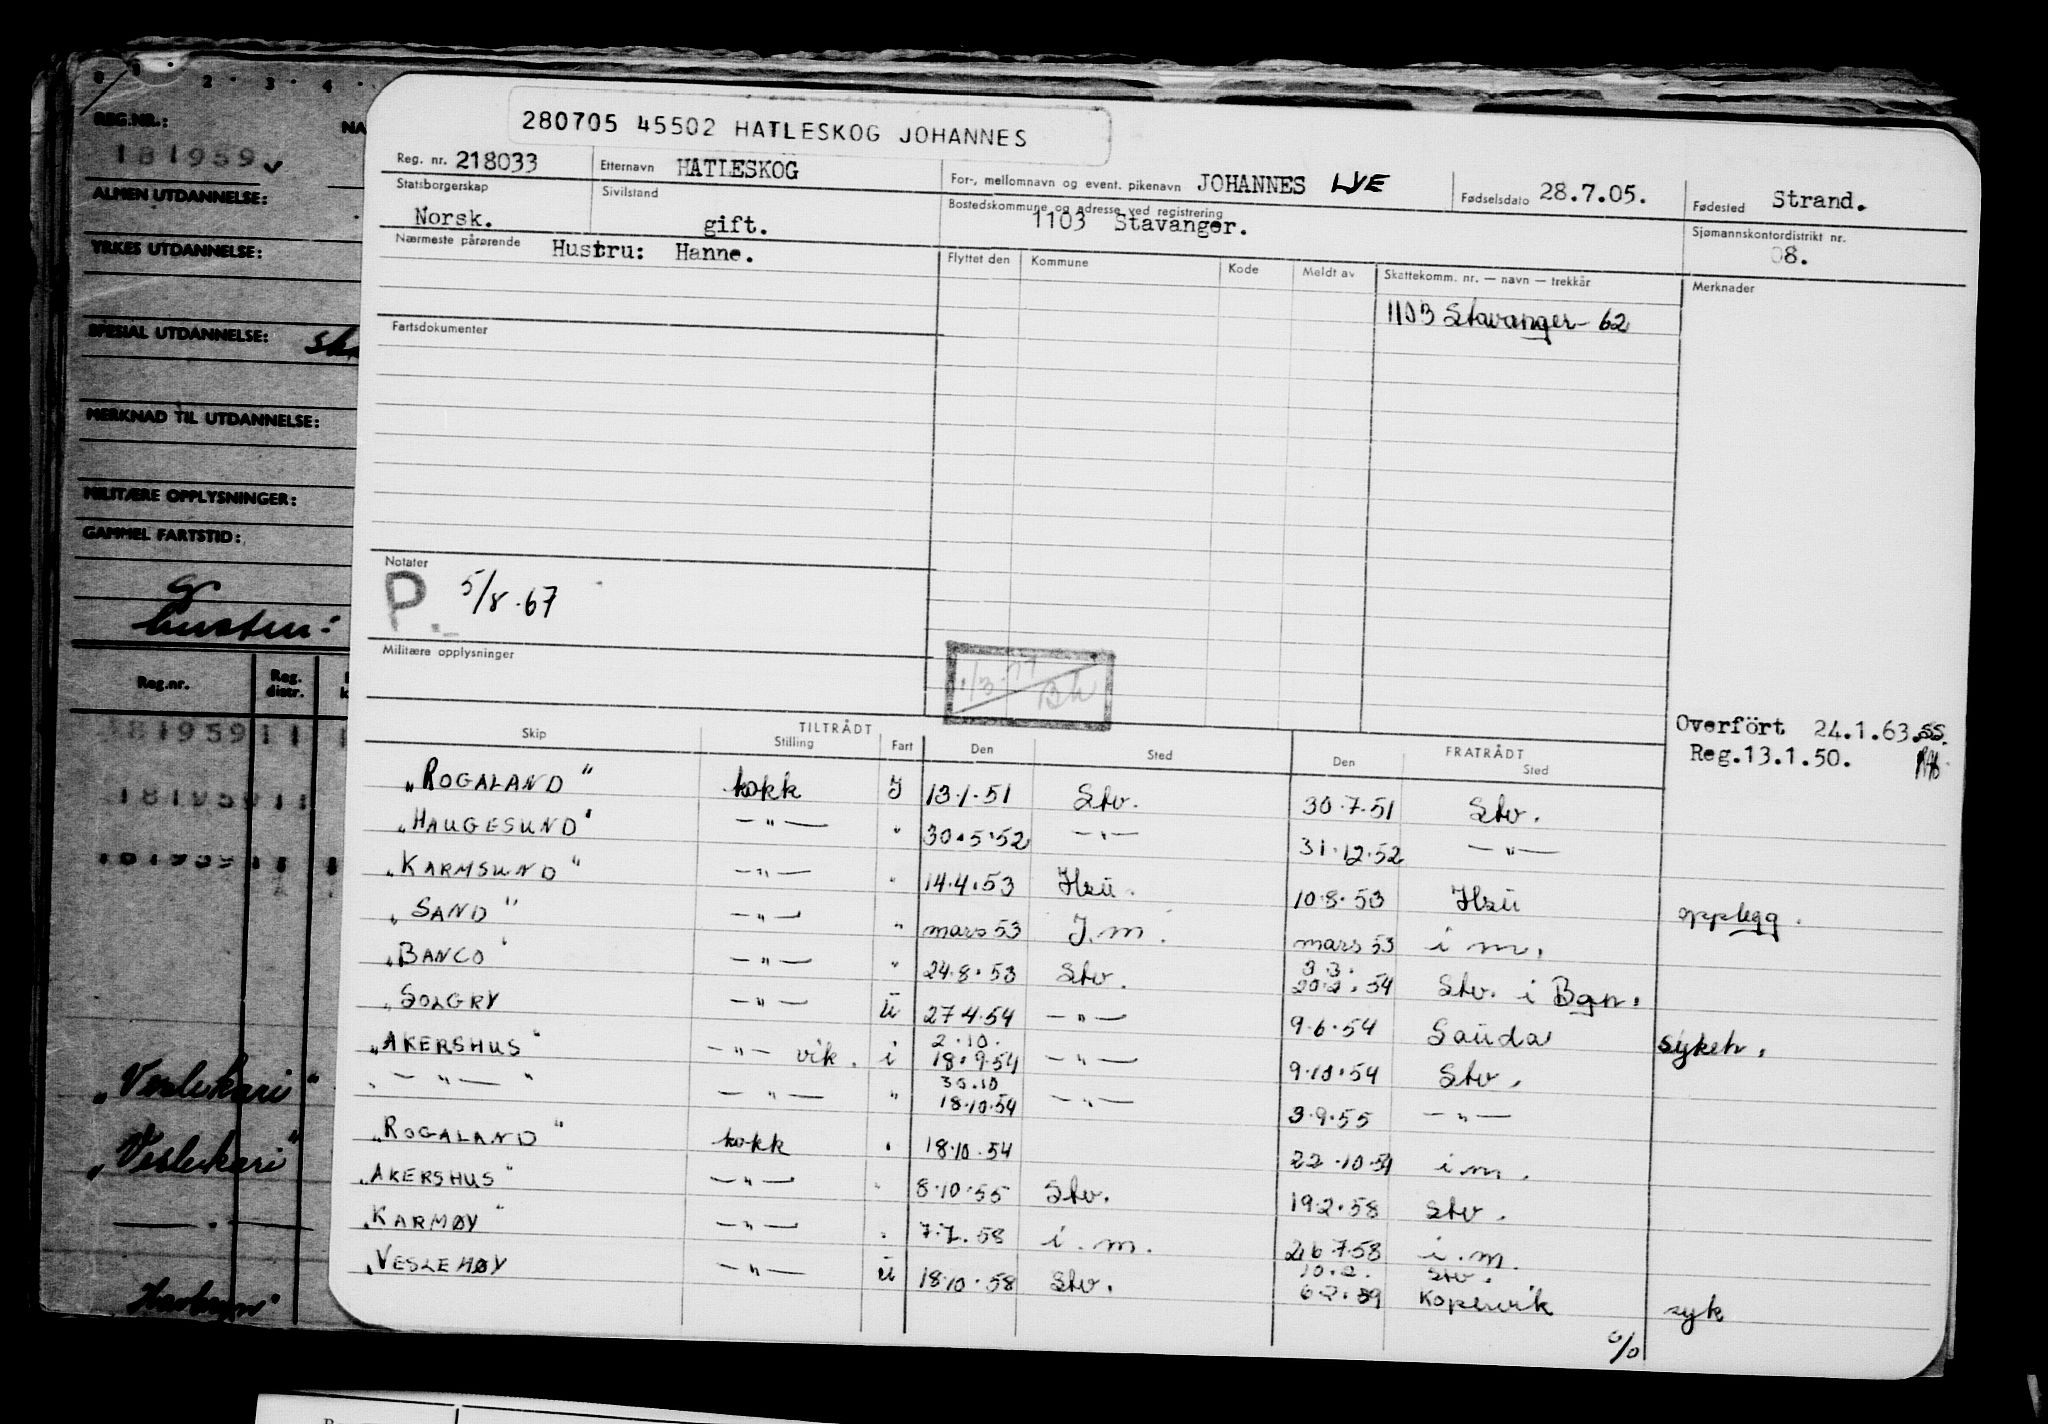 280705 45502 HATLESKOG JOHANNES
Reg. nr. 218033 Etternavn HATLESKOG For-, mellomnavn og event. pikenavn JOHANNES LYE Fødselsdato 28.7.05. Fødested Strand.
Statsborgerskap Norsk. Sivilstand gift. Bostedskommune og adresse ved registrering 1103 Stavanger. Sjømannskontordistrikt nr. 08.
Nærmeste pårørende Hustru: Hanne. Flyttet den Kommune Kode Meldt av Skattekomm. nr. — navn — trekkår Merknader
1103 Stavanger - 62
Fartsdokumenter
Notater
P. 5/8.67
Militære opplysninger
Overført 24.1.63. SS.
Reg.13.1.50.
TILTRÅDT FRATRÅDT
Skip Stilling Fart Den Sted Den Sted
"ROGALAND" kokk J 13.1.51 Stv. 30.7.51 Stv.
"HAUGESUND" —"— " 30.5.52 —"— 31.12.52 —"—
"KARMSUND" —"— " 14.4.53 Hsu. 10.8.53 Hsu opplegg.
"SAND" —"— " mars 53 J.m. mars 53 i m.
"BANCO" —"— " 24.8.53 Stv. 3.3. 20.2.54 Stv. i Bgn.
"SOLGRY —"— U 27.4.54 —"— 9.6.54 Sauda sykeh.
"AKERSHUS" —"— vik. i 2.10. 18.9.54 —"— 9.10.54 Stv.
" —"— " —"— " 30.10 18.10.54 —"— 3.9.55 —"—
"ROGALAND" kokk " 18.10.54 22.10.54 i m.
"AKERSHUS" —"— " 8.10.55 Stv. 19.2.58 Stv.
"KARMØY" —"— " 7.7.58 i.m. 26.7.58 i.m.
"VESLEMØY —"— U 18.10.58 Stv. 10.2. Stv. 6.2.59 Kopervik syk
%
REG.NR.: NA
181959
ALMEN UTDANNELSE:
YRKES UTDANNELSE:
SPESIAL UTDANNELSE:
MERKNAD TIL UTDANNELSE:
MILITÆRE OPPLYSNINGER:
GAMMEL FARTSTID:
Reg.nr. Reg. distr.
181959 11 1
181959 11
181959 11 1
"Veslekari"
"Veslekari"
—"—